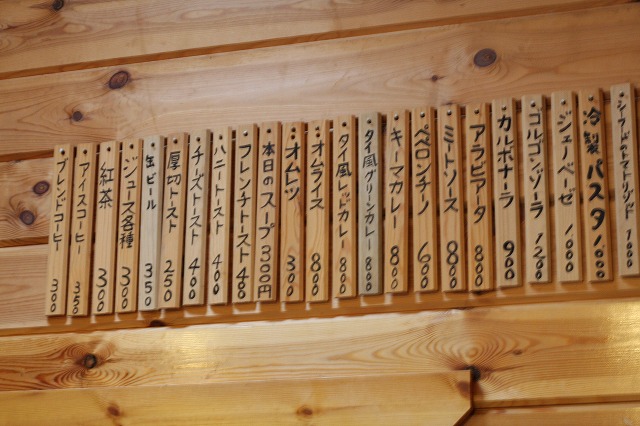 シーフードのトマトリゾット 1000
冷製パスタ 1000
ジェノベーゼ 1000
ゴルゴンゾーラ 1200
カルボナーラ 900
アラビアータ 800
ミートソース 800
ペペロンチーノ 600
キーマカレー 800
タイ風グリーンカレー 800
タイ風レッドカレー 800
オムライス 800
オムレツ 300
本日のスープ 300円
フレンチトースト 400
ハニートースト 400
チーズトースト 400
厚切トースト 250
缶ビール 350
ジュース各種 300
紅茶 300
アイスコーヒー 350
ブレンドコーヒー 300